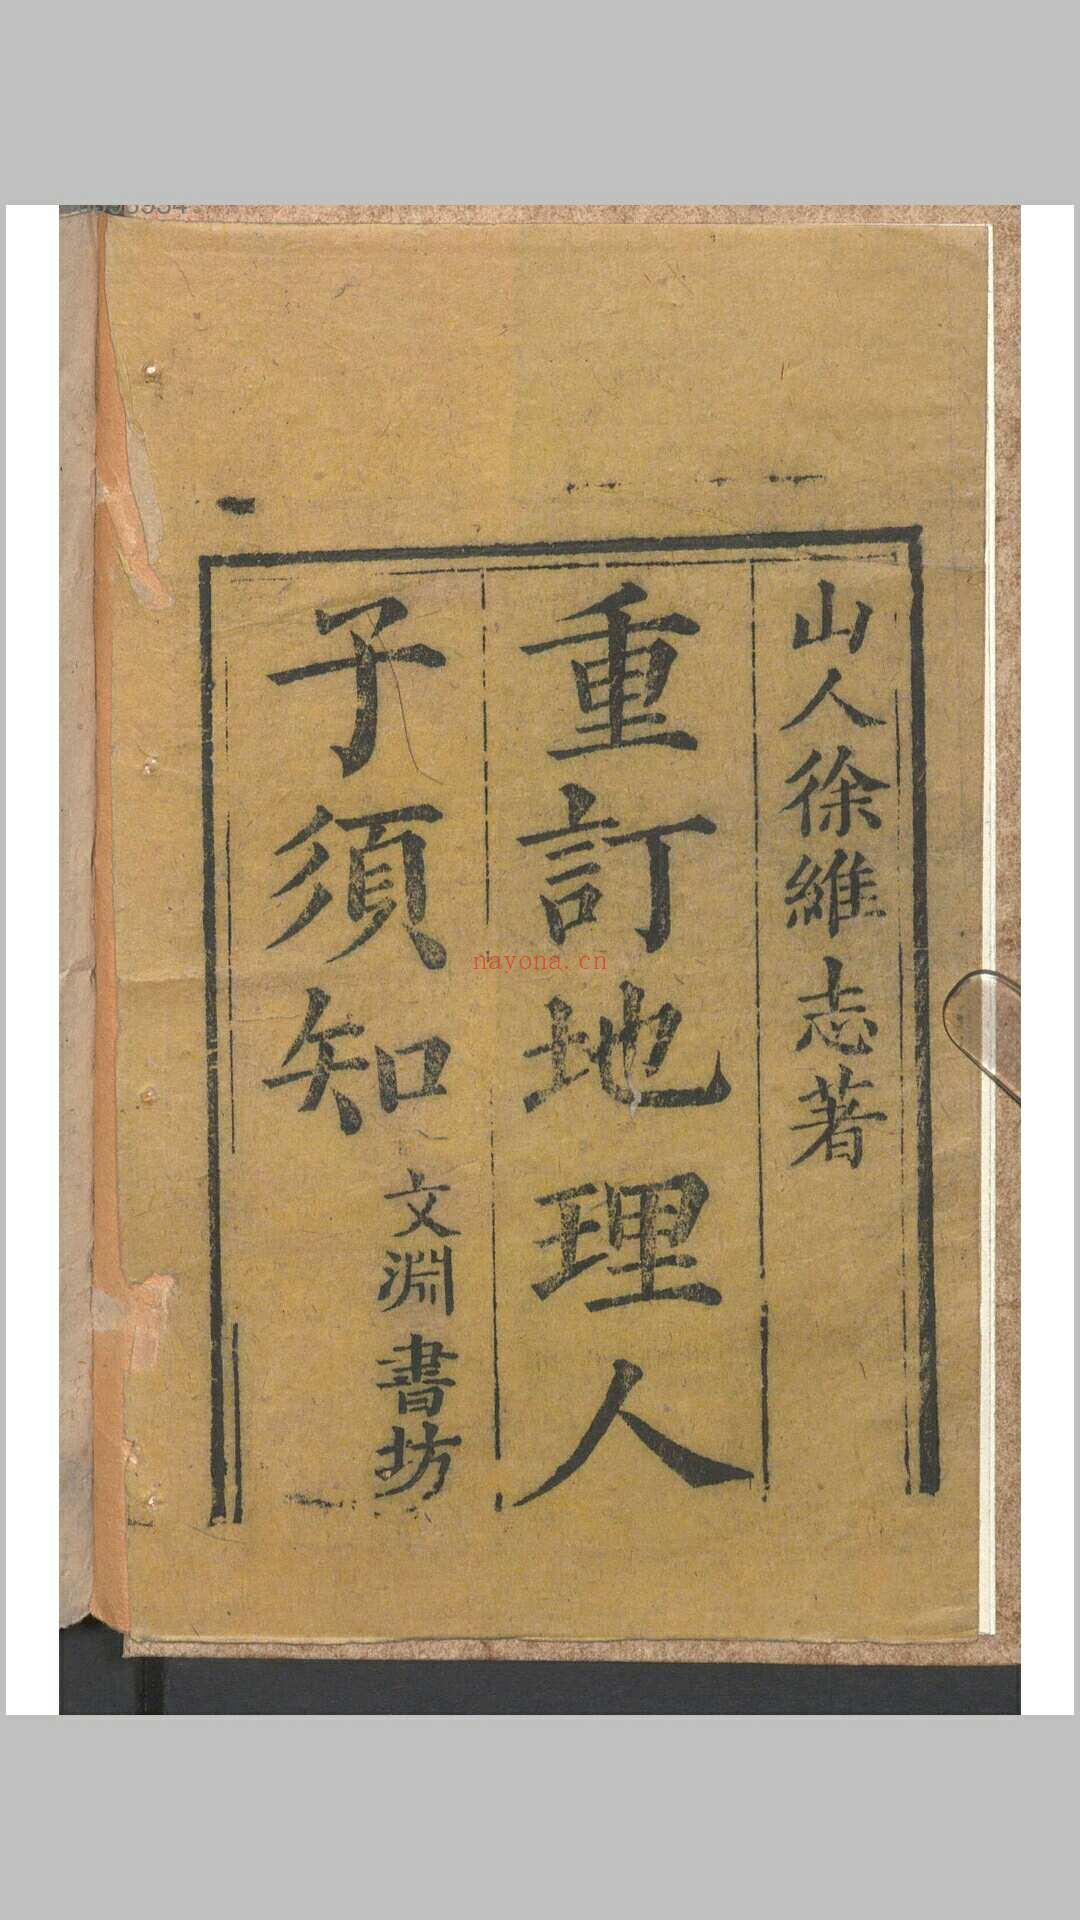 山人徐維志著
重訂地理人
子須知
文淵書坊
nayona.cn